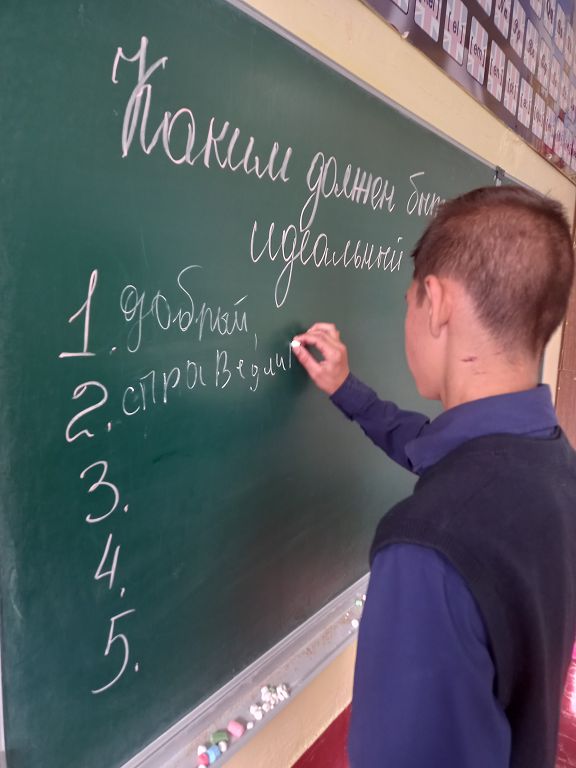 Каким должен быт
идеальный
1. добрый,
2. справедли
3.
4.
5.